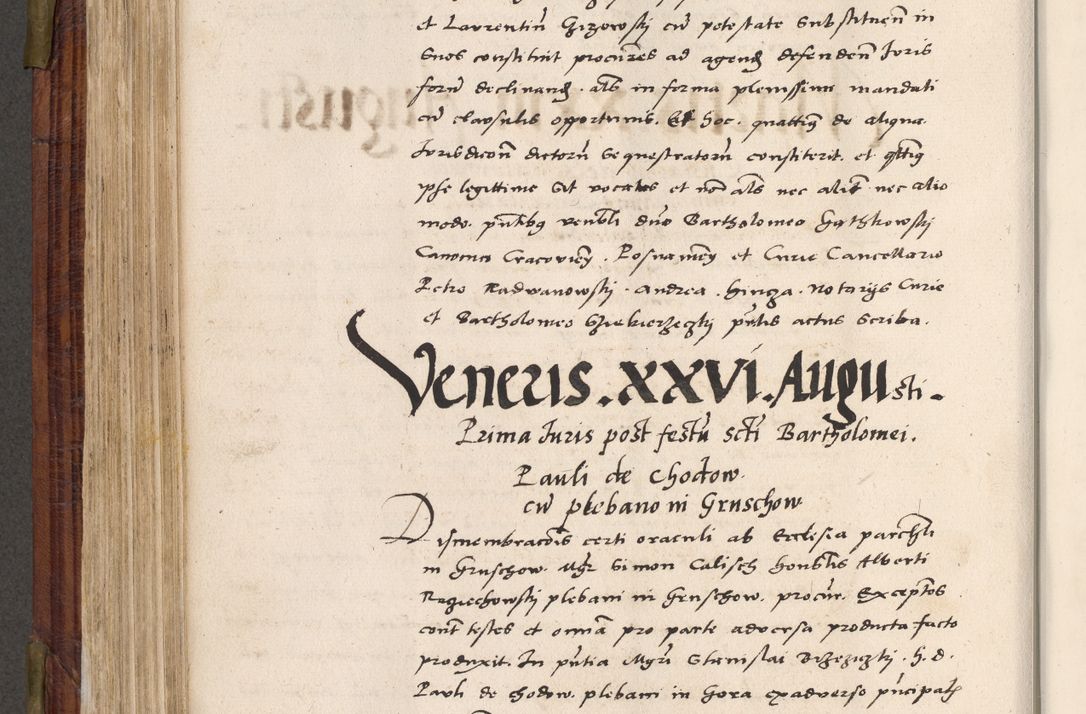 et Laurentiũ Gizowskj cũ potestate Substituen̄ in
Suos constituit procur̃es ad agend̃ defenden̄ Juris
forũ declinand̃ . als̃ in forma plenissimi mandati
cũ clausulis opportunis. Et hoc . quatting de aliqua.
Jurisdicon̄ dictorũ Sequestratorũ constiterit. et
ipse legittime sit vocatus et nõ als̃ nec alit̃ . nec alio
modo. pñtibg venbli dño Bartholomeo Gathkowskj
Canonico Cracovien̄ . Posnanien̄ et Curie Cancellario
Petro Radwanowskj . Andrea . hinga . Notarijs Curie
et Bartholomeo Sziekierzeczkj pñtis actus Scriba .
Veneris . XXVI . Augusti .
Prima Juris post festũ scti Bartholomei .
Pauli de Chodow
cũ plebano in Gruschow
Dismembracõis certi oraculi ab Ecclesia parchli
in Gruschow . Mgr Simon Calisch honblis Alberti
plebani in Gruschow . procur̃ . Exceptões
cont̃ testes et omnia pro parte adversa producta facto
produxit . In pñtia Mgri Stanislai Brzezyczkj . h . d .
Pauli de Chodow . plebani in Gora exadverso pñcipal